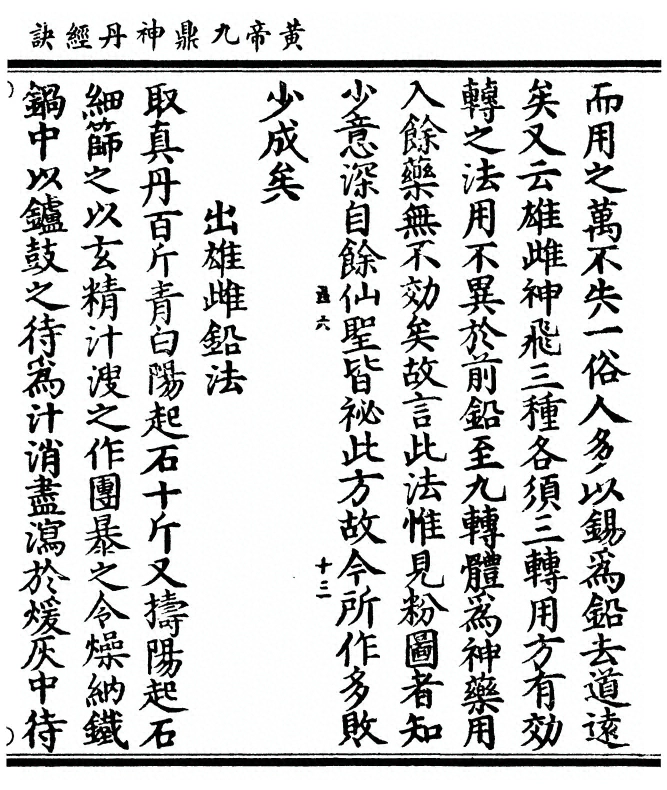 黄帝九鼎神丹經訣
而用之萬不失一俗人多以錫爲鉛去道遠
矣又云雄雌神飛三種各須三轉用方有効
轉之法用不異於前鉛至九轉體爲神藥用
入餘藥無不効矣故言此法惟見粉圖者知
少意深自餘仙聖皆祕此方故今所作多敗
六
十三
少成矣
出雄雌鉛法
取真丹百斤青白陽起石十斤又擣陽起石
細篩之以玄精汁溲之作團暴之令燥納鐵
鍋中以鑪鼓之待爲汁消盡瀉於煖灰中待